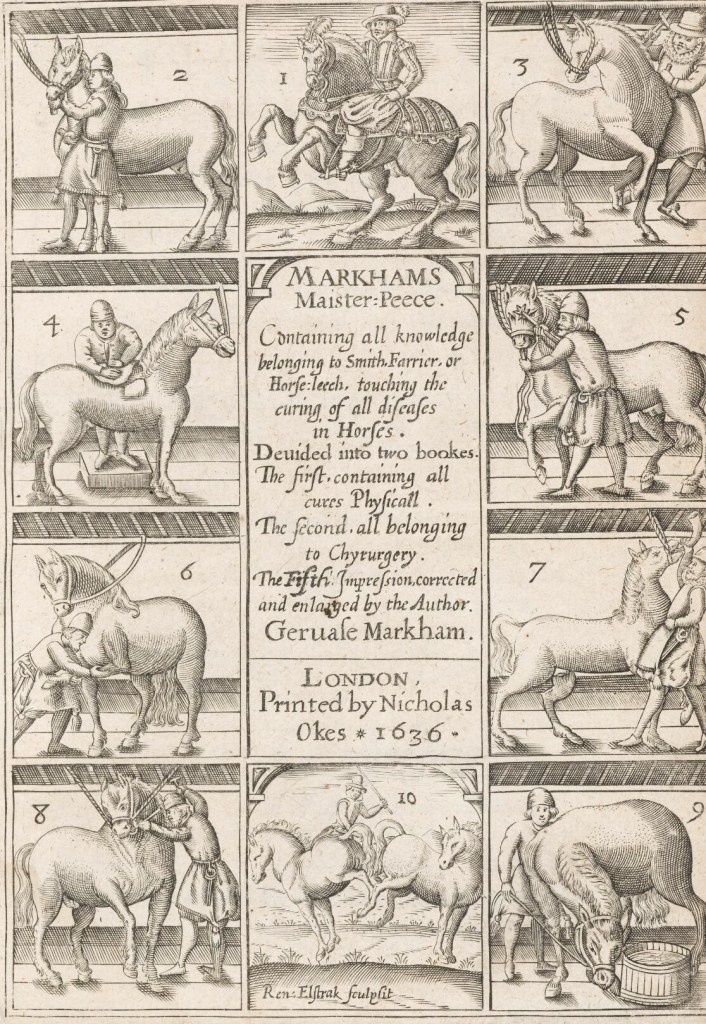 2
1
3
4
MARKHAMS
Maister=Peece.
Containing all knowledge
belonging to Smith, Farrier, or
Horſe=leech, touching the
curing of all diſeaſes
in Horſes.
Deuided into two bookes.
The firſt, containing all
cures Phyſicall.
The ſecond, all belonging
to Chyrurgery.
The Fifth Impreſsion, corrected
and enlarged by the Author.
Geruaſe Markham.
5
6
7
LONDON,
Printed by Nicholas
Okes * 1636.
8
10
9
Ren: Elſtrak ſculpſit